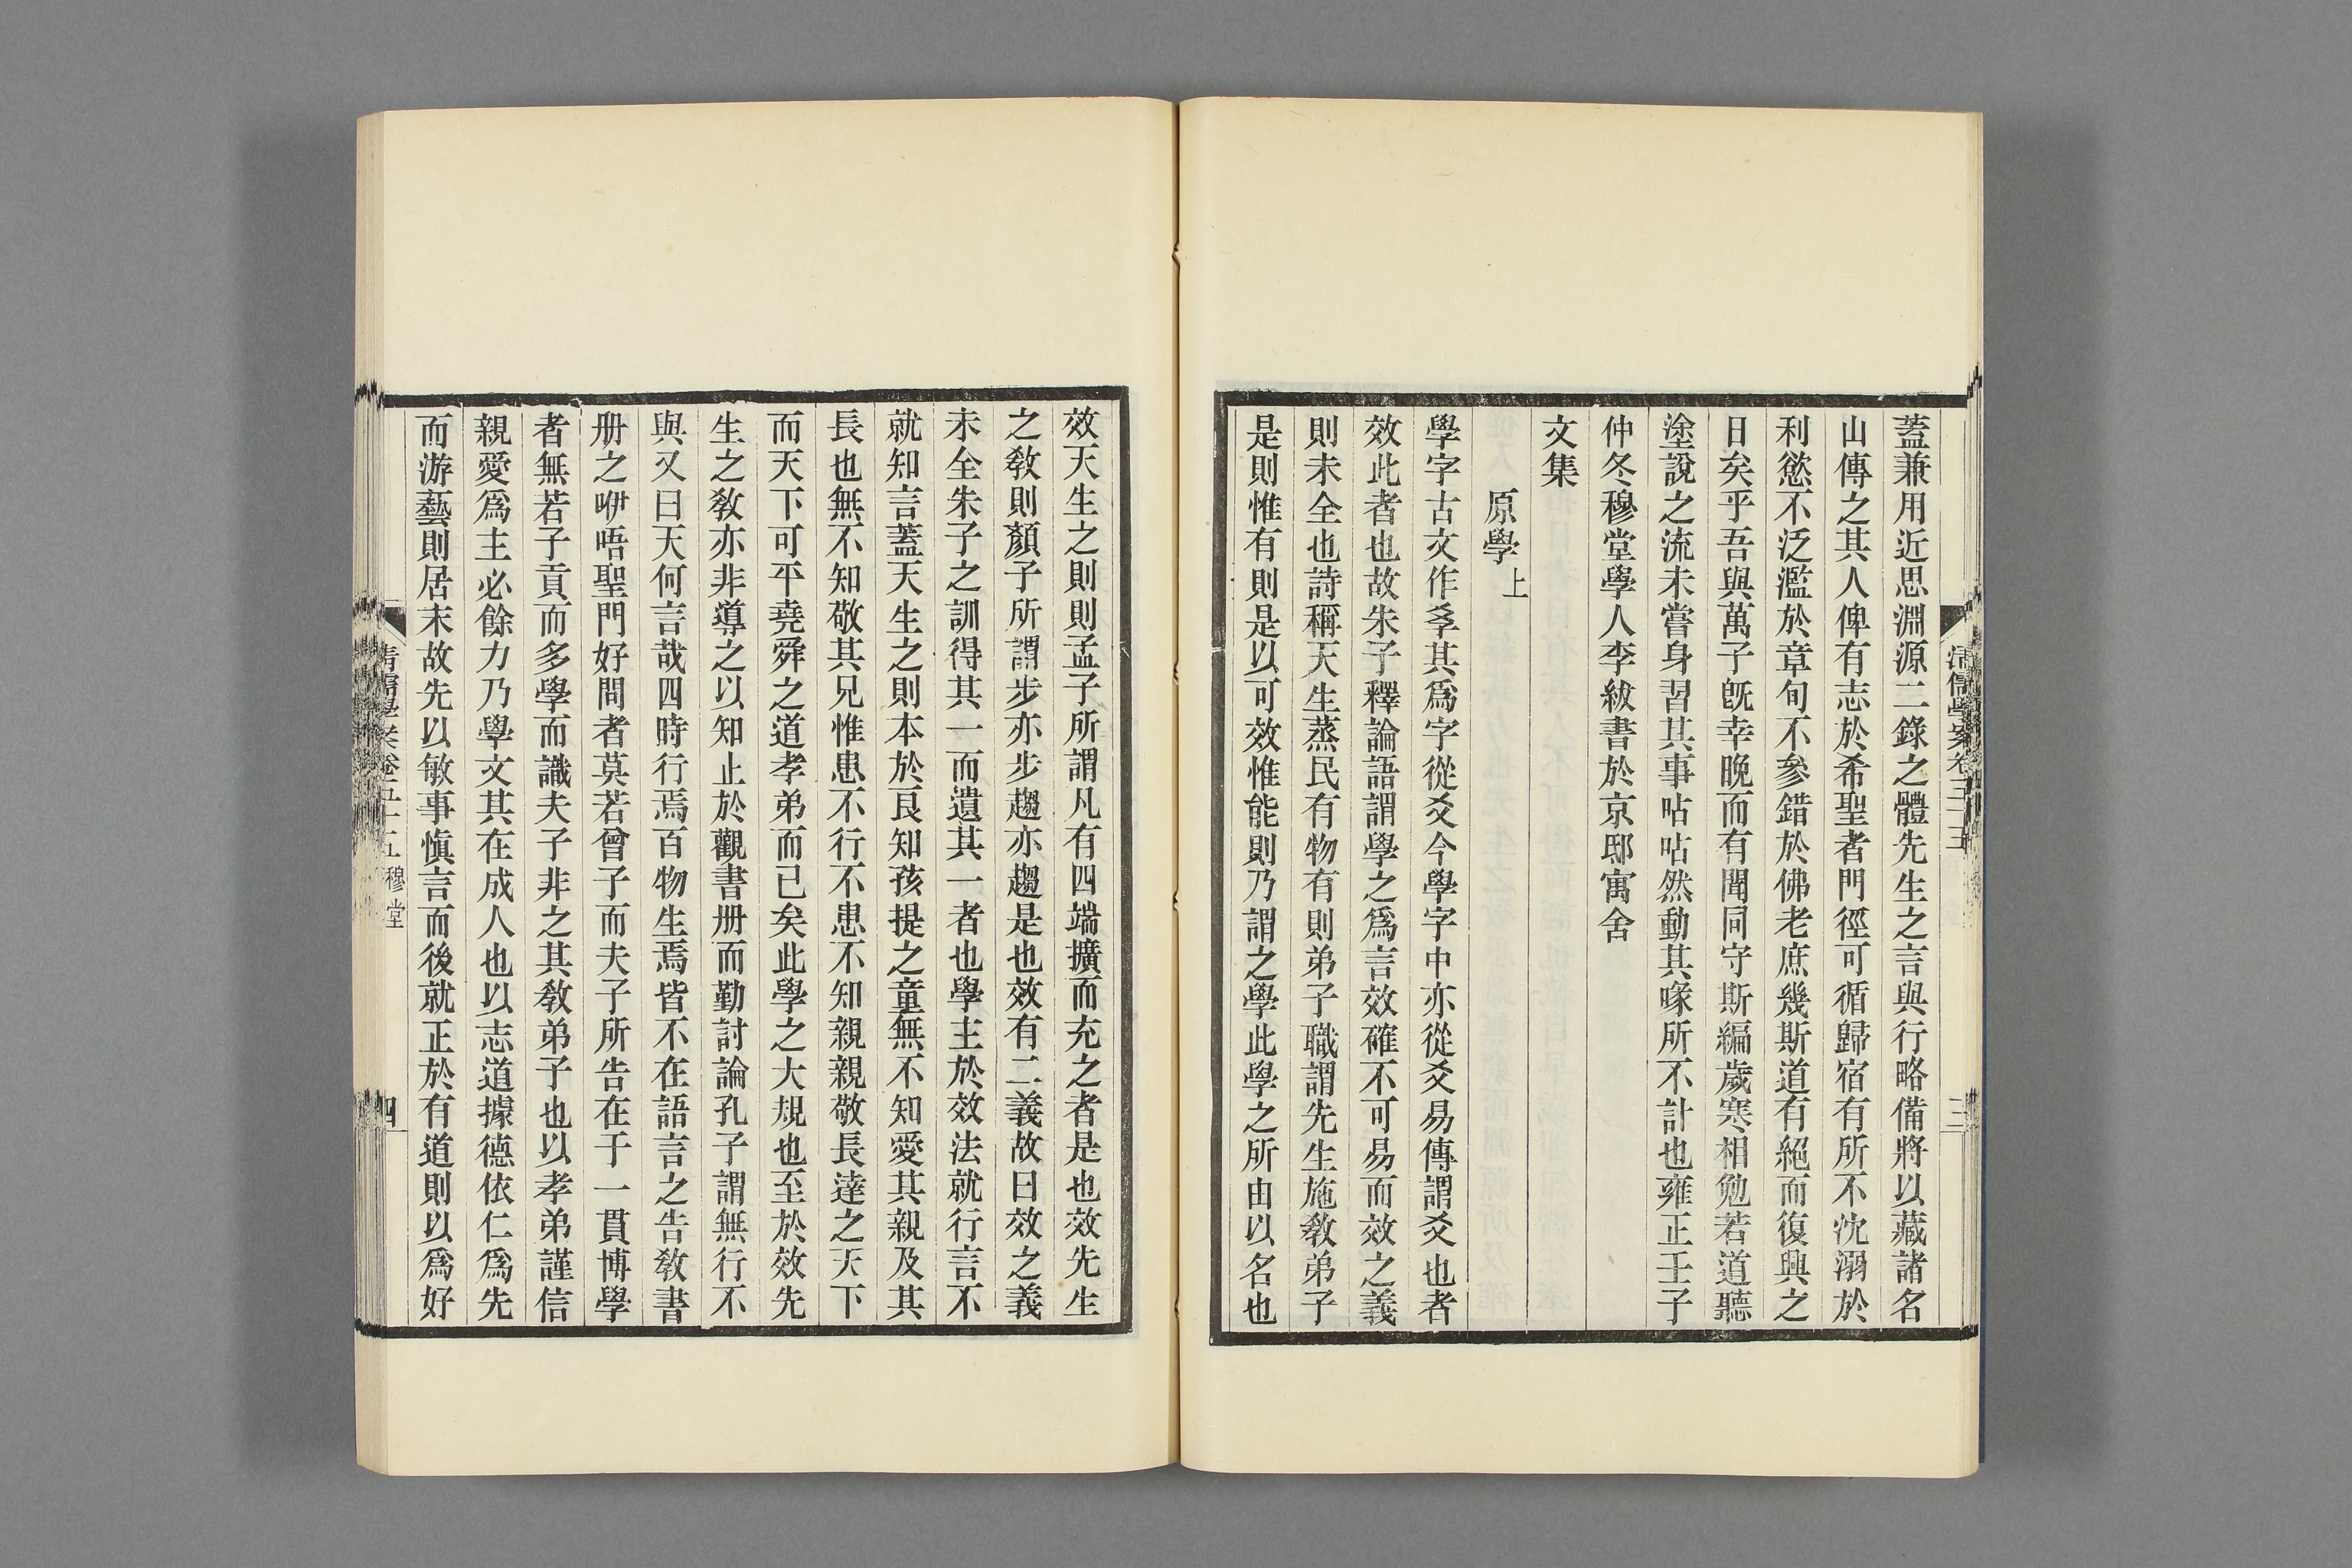 蓋兼用近思淵源二錄之體先生之言與行略備將以藏諸名
山傳之其人俾有志於希聖者門徑可循歸宿有所不沈溺於
利慾不泛濫於章句不參錯於佛老庶幾斯道有絕而復興之
日矣乎吾與萬子旣幸晚而有聞同守斯編歲寒相勉若道聽
塗說之流未嘗身習其事呫呫然動其喙所不計也雍正壬子
仲冬穆堂學人李紱書於京邸寓舍
文集
原學上
學字古文作㸚其爲字從爻今學字中亦從爻易傳謂爻也者
效此者也故朱子釋論語謂學之爲言效確不可易而效之義
則未全也詩稱天生蒸民有物有則弟子職謂先生施敎弟子
是則惟有則是以可效惟能則乃謂之學此學之所由以名也
效天生之則則孟子所謂凡有四端擴而充之者是也效先生
之敎則顏子所謂步亦步趨亦趨是也效有二義故曰效之義
未全朱子之訓得其一而遺其一者也學主於效法就行言不
就知言蓋天生之則本於良知孩提之童無不知愛其親及其
長也無不知敬其兄惟患不行不患不知親親敬長達之天下
而天下可平堯舜之道孝弟而已矣此學之大規也至於效先
生之敎亦非導之以知止於觀書册而勤討論孔子謂無行不
與又曰天何言哉四時行焉百物生焉皆不在語言之告敎書
册之咿唔聖門好問者莫若曾子而夫子所告在于一貫博學
者無若子貢而多學而識夫子非之其敎弟子也以孝弟謹信
親愛爲主必餘力乃學文其在成人也以志道據德依仁爲先
而游藝則居末故先以敏事愼言而後就正於有道則以爲好
清儒學案卷五十五 穆堂 四